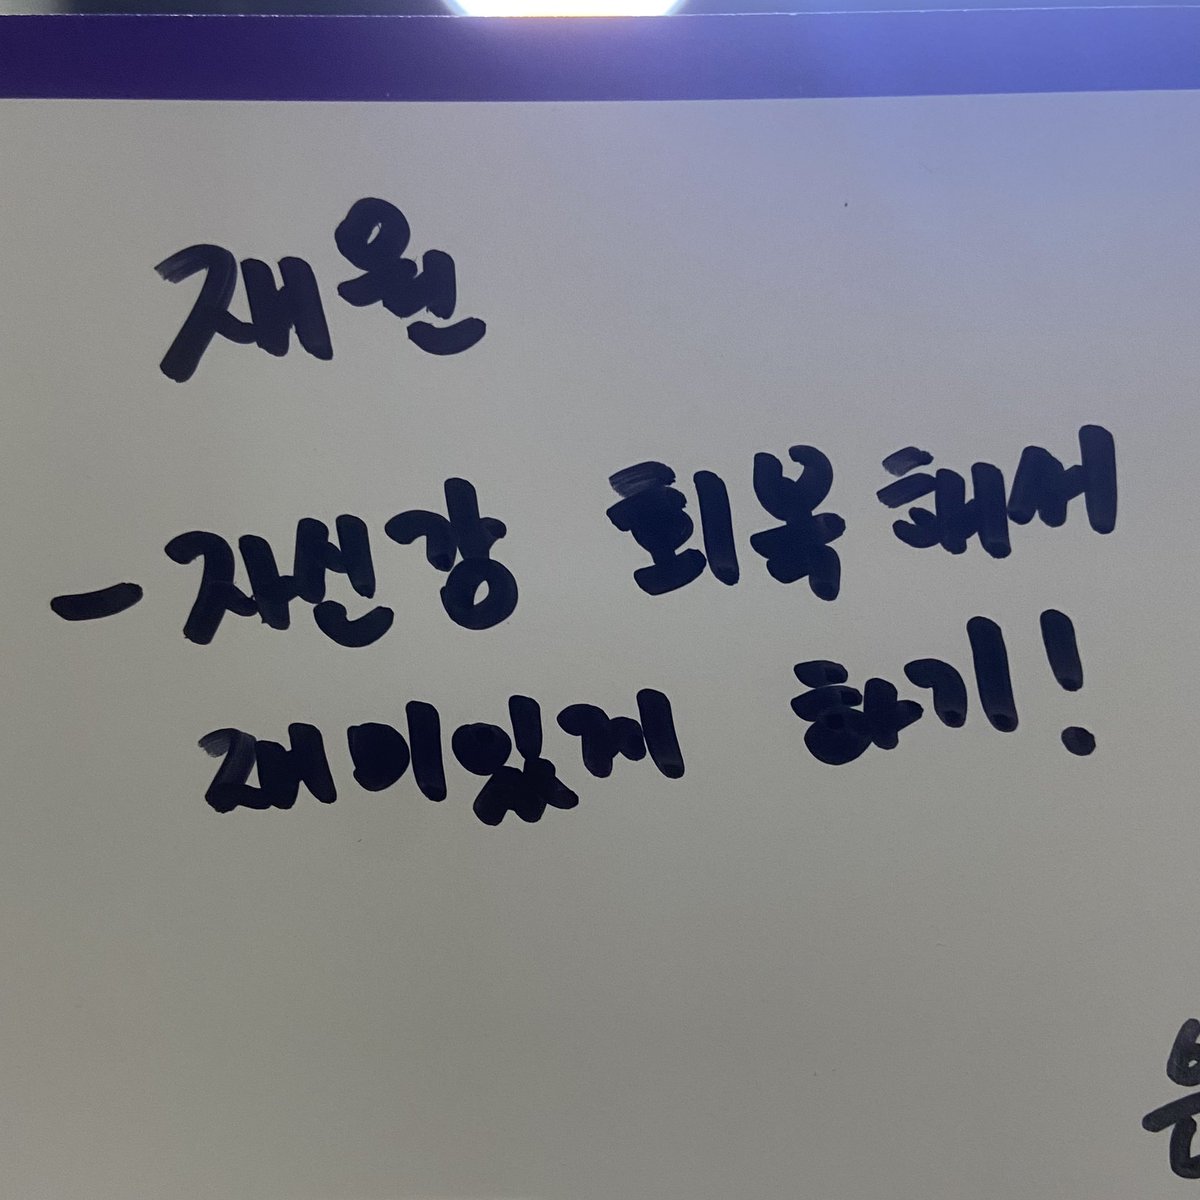 재원
- 자신강 회복해서
재미있게 하기!